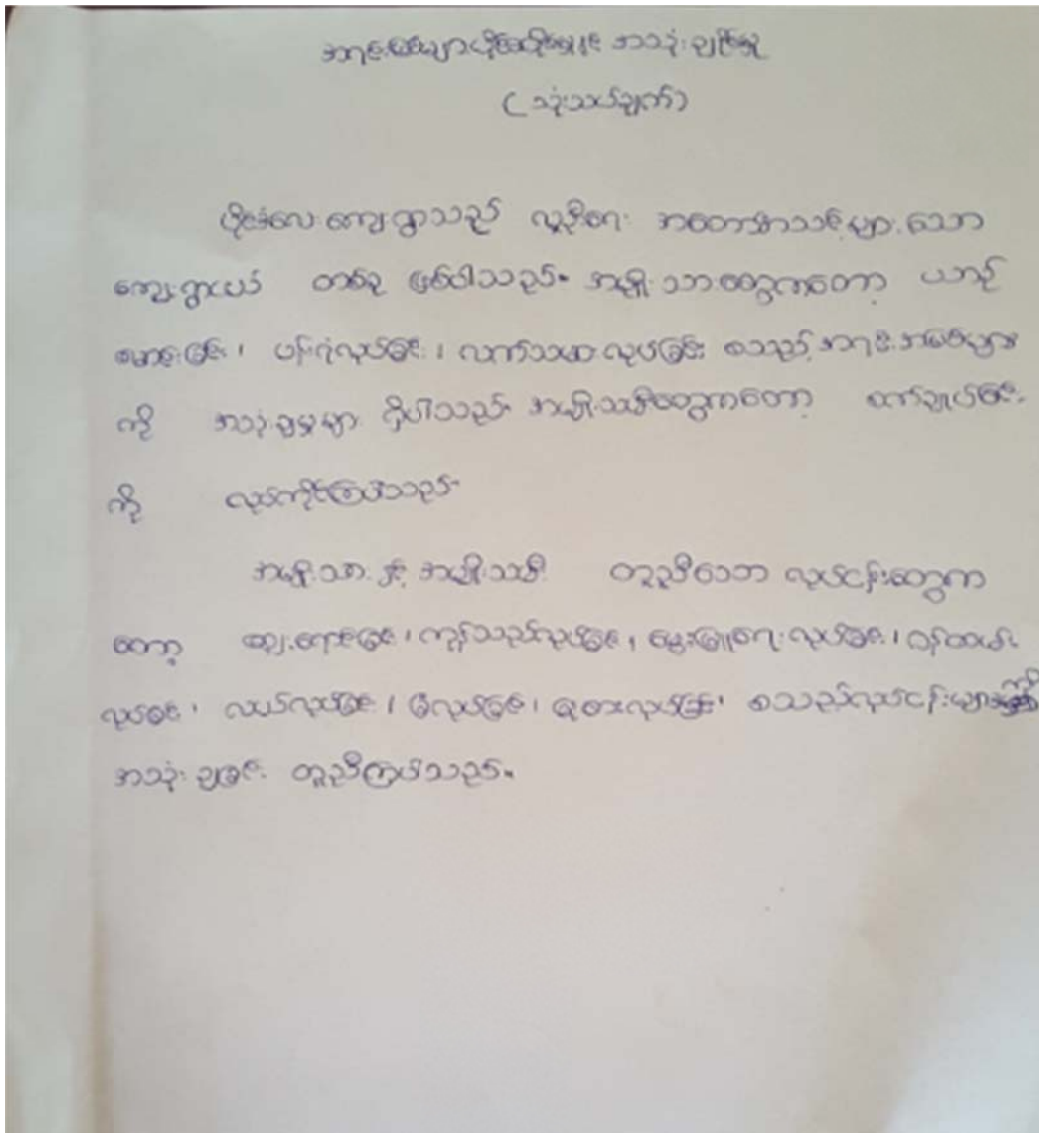 အရင်းအမြစ်များပိုင်ဆိုင်မှုနှင့် အသုံးချနိုင်မှု
( သုံးသပ်ချက်)
ကျေးရွာသည် လူဦးရေ အတော်အသင့်များသော
ကျေးရွာပင် တစ်ခု ဖြစ်ပါသည်။ အမျိုးသားတွေကတော့ ယာဉ်
မောင်းခြင်း၊ ပန်းရံလုပ်ခြင်း၊ လက်သမားလုပ်ခြင်း စသည့် အရင်းအမြစ်များ
ကို အသုံးချမှုများ ရှိပါသည်။ အမျိုးသမီးတွေကတော့ စက်ချုပ်ခြင်း
ကို လုပ်ကိုင်ကြပါသည်။
အမျိုးသား နှင့် အမျိုးသမီး တူညီသော လုပ်ငန်းတွေက
တော့ ဈေးရောင်းခြင်း၊ ကုန်သည်လုပ်ခြင်း၊ မွေးမြူရေးလုပ်ခြင်း၊ ဝန်ထမ်း
လုပ်ခြင်း၊ လယ်လုပ်ခြင်း၊ လုပ်ခြင်း၊ လုပ်ခြင်း၊ စသည့်လုပ်ငန်းများကို
အသုံးချခြင်း တူညီကြပါသည်။